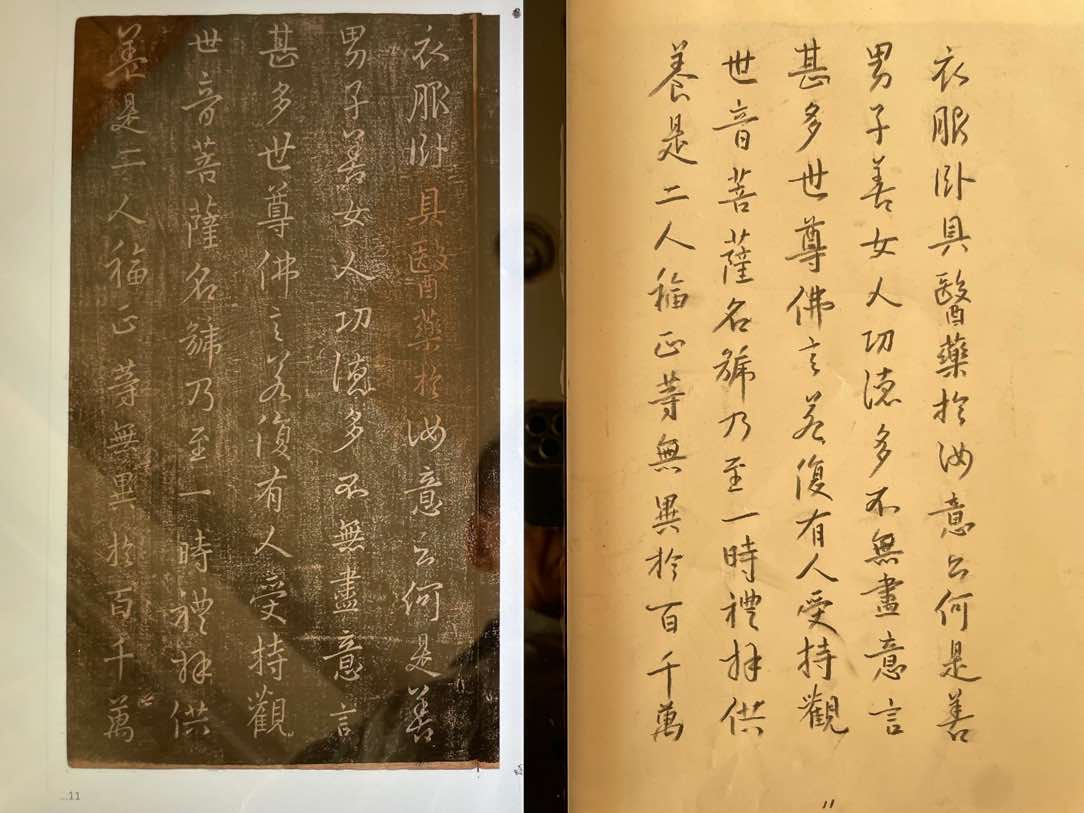 衣服卧具醫藥於汝意云何是善
男子善女人功德多不無盡意言
甚多世尊佛言若復有人受持觀
世音菩薩名號乃至一時禮拜供
養是二人福正等無異於百千萬
...11
衣服卧具醫藥於汝意云何是善
男子善女人功德多不無盡意言
甚多世尊佛言若復有人受持觀
世音菩薩名號乃至一時禮拜供
養是二人福正等無異於百千萬
11